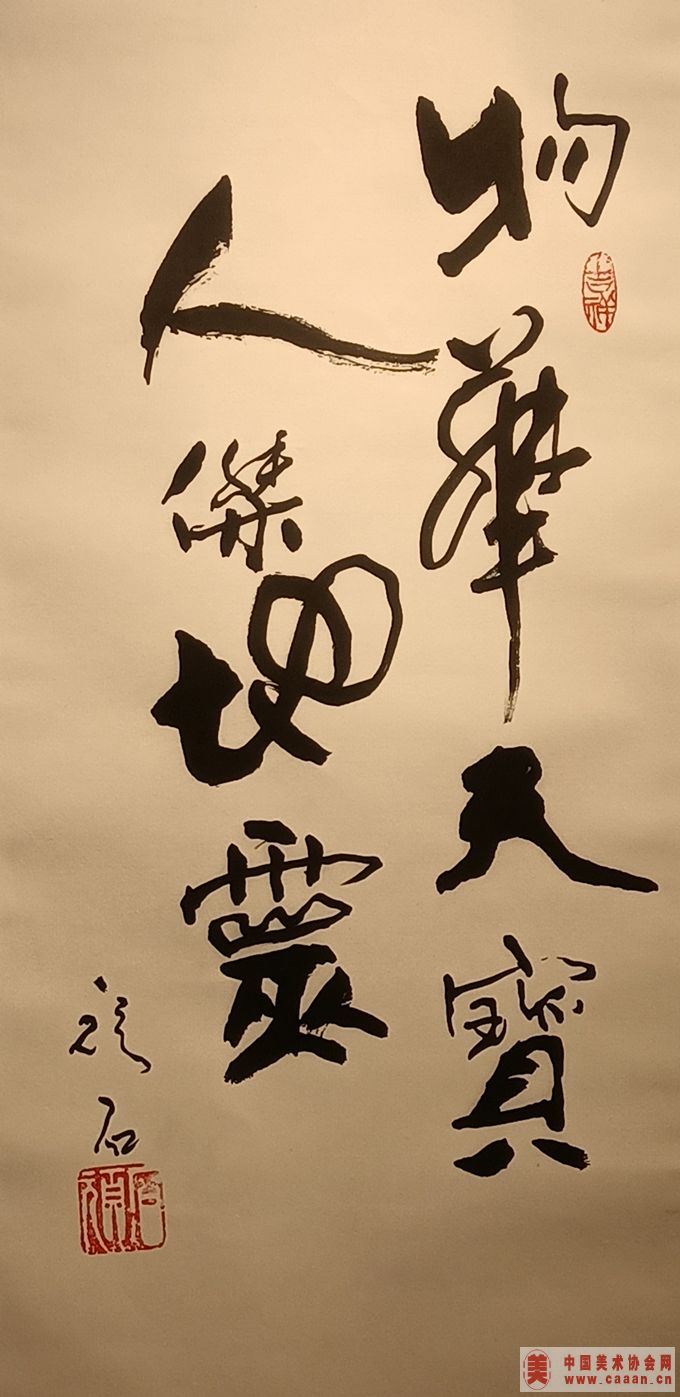 物華天寶
人傑地靈
石
吉祥
中国美术协会网
www.caaan.cn